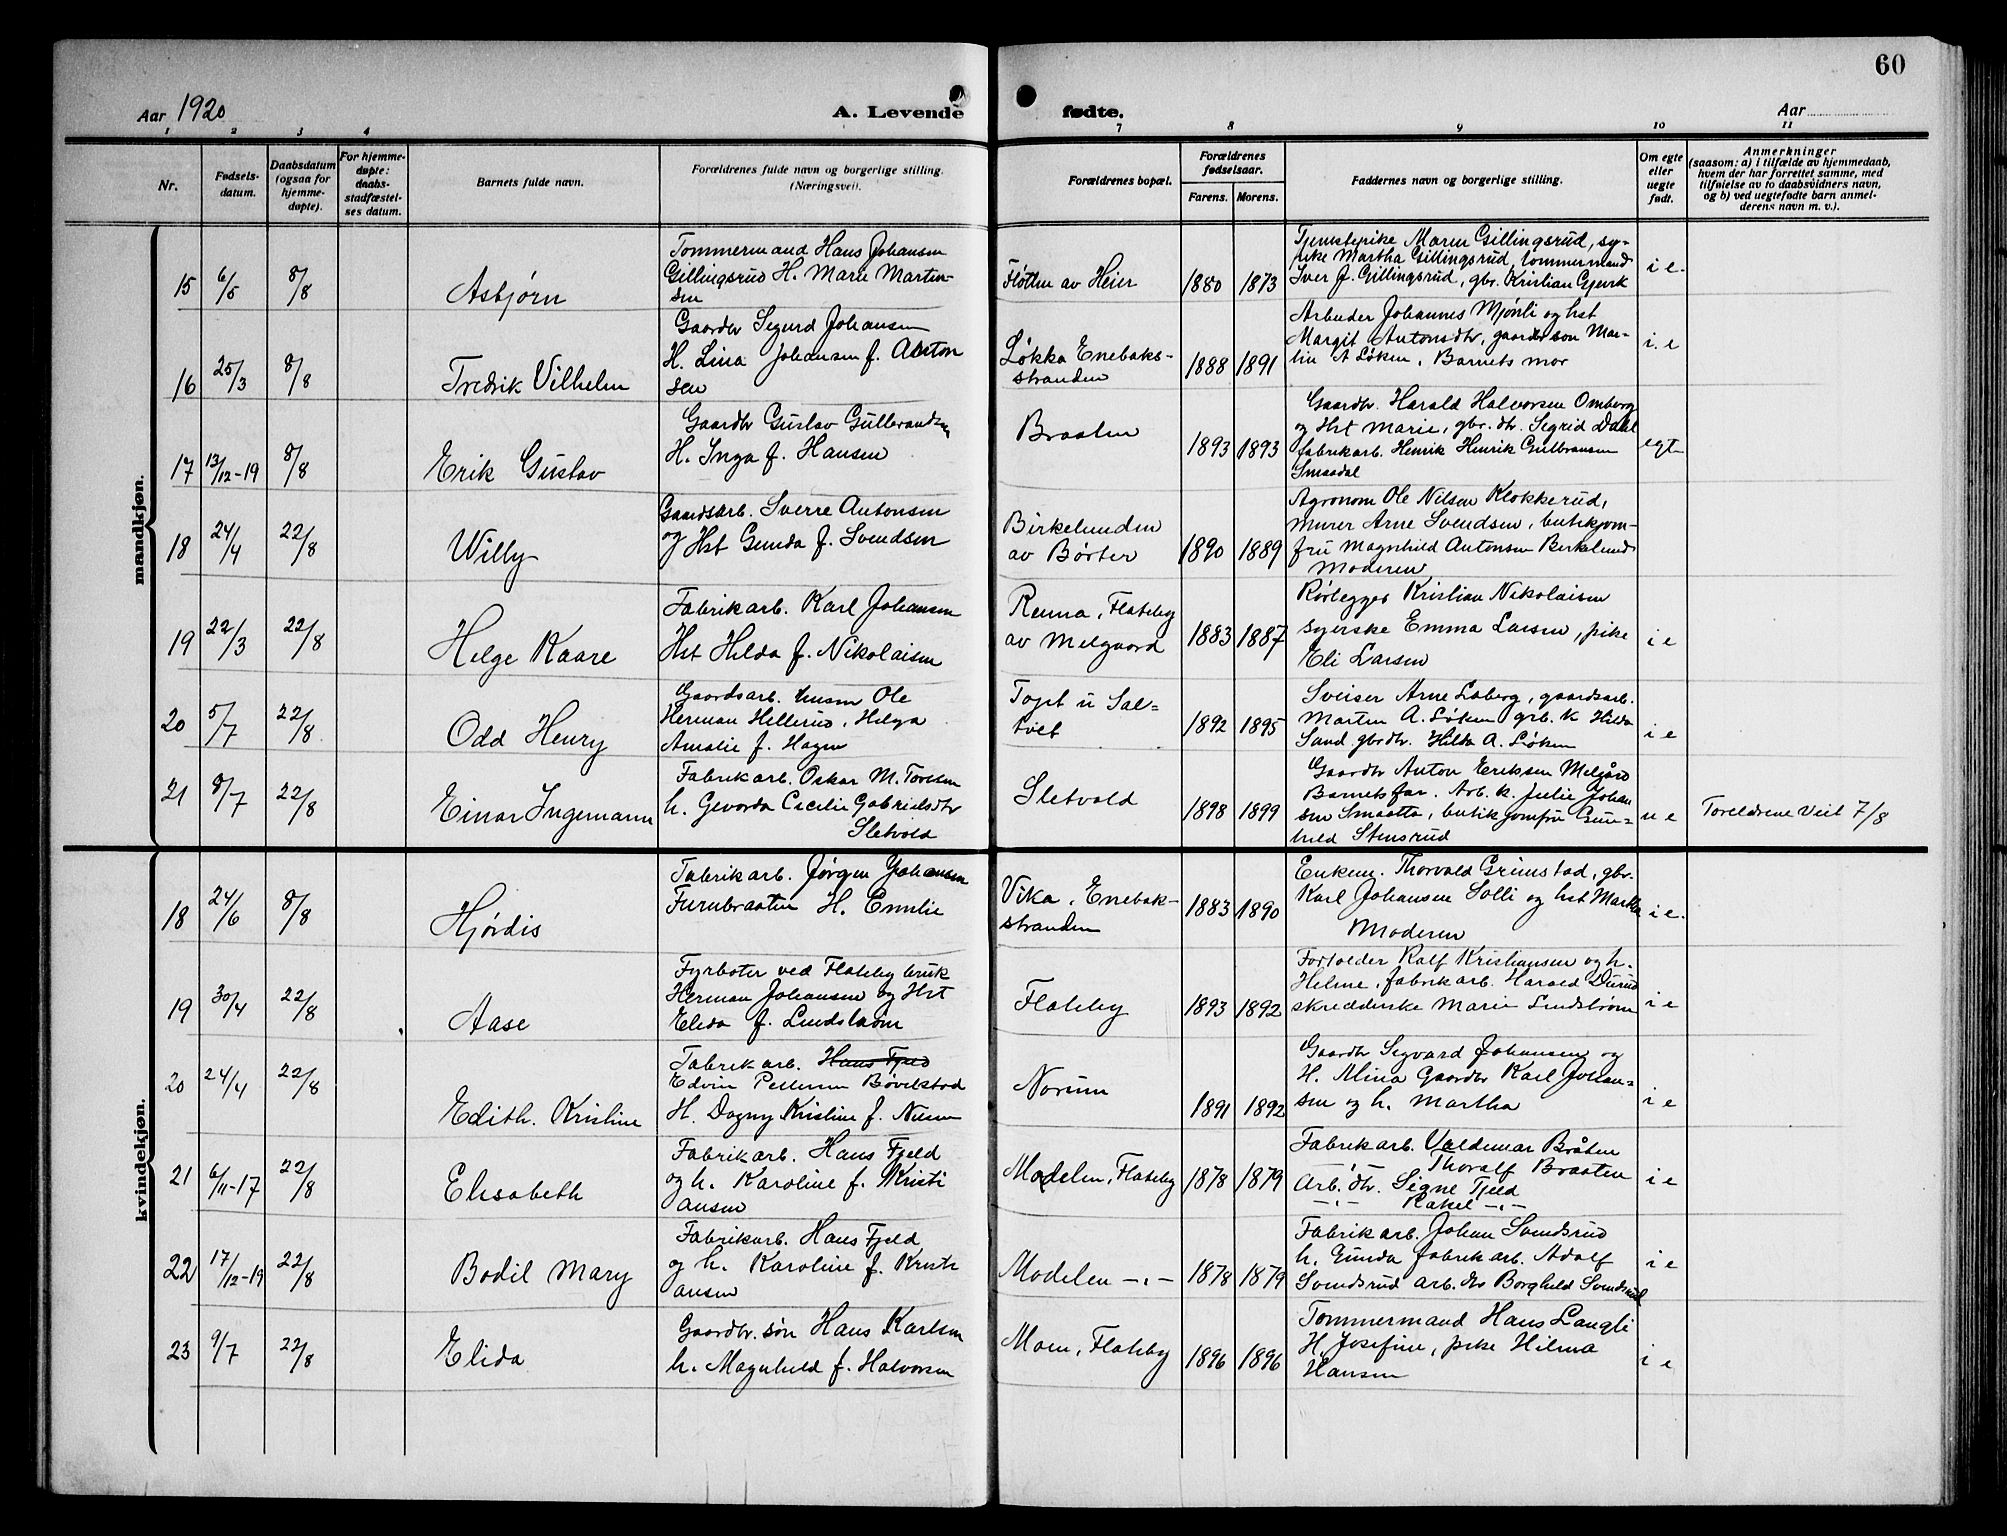 60
Aar 1920
A. Levende
fødte.
Aar
1 2 3 4
7 8 9 10 11
Nr.
Fødsels-
datum.
Daabsdatum
(ogsaa for
hjemme-
døpte).
For hjemme-
døpte:
daabs-
stadfæstel-
ses datum.
Barnets fulde navn.
Forældrenes fulde navn og borgerlige stilling.
(Næringsvei).
Forældrenes bopæl.
Forældrenes
fødselsaar.
Farens. Morens.
Faddernes navn og borgerlige stilling.
Om egte
eller
uegte
født.
Anmerkninger
(saasom: a) i tilfælde av hjemmedaab,
hvem der har forrettet samme, med
tilføielse av to daabsvidners navn,
og b) ved uegtefødte barn anmel-
derens navn m. v.).
mandkjøn.
15 6/5 8/8 Asbjørn
Tømmermand Hans Johansen
Gillingsrud H. Marie Martin-
sen
Fløtten av Heier 1880 1873
Tjenestepike Maren Gillingsrud, sy-
pike Martha Gillingsrud, tømmermand
Iver J. Gillingsrud, gbr. Kristian Gjersk
i e.
16 25/3 8/8 Fredrik Vilhelm
Gaardbr Sigurd Johansen
H. Lina Johansen f. Anton
sen
Løkka Enebaks-
stranden
1888 1891
Arbeider Johannes Mjønli og hst
Margit Antonsdtr, gaardbr søn Mar-
tin A Løken, Barnets mor
i. e
17 13/12-19 8/8 Erik Gustav
Gaardbr Gustav Gulbrandsen
H. Inga f. Hansen
Braaten
1893 1893
Gaardbr. Harald Halvorsen Omberg
og Hst Marie, gbr. dtr. Sigrid Dahl
fabrikarb. Henrik Henrik Gulbransen
Smaadal
egt-
18 24/4 22/8 Willy
Gaardsarb. Sverre Antonsen
og Hst Gunda f. Svendsen
Birkelunden
av Børter
1890 1889
Agronom Ole Nilsen Klokkerud,
murer Arne Svendsen, butikjom-
fru Magnhild Antonsen Birkelund
Moderen
19 22/3 22/8 Helge Kaare
Fabrikarb. Karl Johansen
Hst Hilda f. Nikolaisen
Renna, Flateby
av Melgaard
1883 1887
Rørlegger Kristian Nikolaisen
syerske Emma Larsen, pike
Eli Larsen
i e
20 5/7 22/8 Odd Henry
Gaardsarb. husm Ole
Herman Hellerud, Helga
Amalie f. Hagen
Topet u Sal=
tvet
1892 1895
Sveiser Arne Laberg, gaardsarb.
Marten A. Løken grb. k Hilda
Sand. gbrdtr. Hilda A. Løken
i e
21 8/7 22/8 Einar Ingemann
Fabrikarb. Oskar M. Toresen
h. Gevorda Cecilie Gabrielsdtr
Sletvold
Sletvold
1898 1899
Gaardbr Anton Eriksen Melgård
Barnets far. Arb. k. Julie Johan
sen Smaatta, butikjomfru Gun=
hild Stensrud
u e
Foreldrene Viet 7/8
kvindekjøn.
18 24/6 8/8 Hjørdis
Fabrikarb. Jørgen Johansen
Furubraaten H. Emilie
Vika, Enebak-
stranden
1883 1890
Enkem. Thorvald Grimstad, gbr.
Karl Johansen Solli og hst Martha
Moderen
i e.
19 30/4 22/8 Aase
Fyrbøter ved Flateby bruk
Herman Johansen og Hst
Elida f. Lindstrøm
Flateby
1893 1892
Forvalder Ralf Kristiansen og h.
Helene, fabrikarb. Harald Durud
skredderske Marie Lindstrøm
i e
20 24/4 22/8 Edith. Kristine
Fabrikarb. Hans Fjeld
Edvin Pettersen Bøvelstad
H. Dagny Kristine f. Nilsen
Norum
1891 1892
Gaardbr Sigvard Johansen og
H. Alina Gaardbr Karl Johan=
sen og h. Martha
i e
21 6/11-17 22/8 Elisabeth
Fabrikarb. Hans Fjeld
og h. Karoline f. Kristi
ansen
Modelen, Flateby 1878 1879
Fabrikarb. Valdemar Bråten
Thoralf Braaten
Arb. dtr. Signe Fjeld
-"- Rakel -"-
i e
22 17/12-19 22/8 Bodil Mary
Fabrikarb. Hans Fjeld
og h. Karoline f. Kristi
ansen
Modelen -"- 1878 1879
Fabrikarb. Johan Svendsrud
h. Gunda fabrikarb. Adolf
Svendsrud arb. dtr Borghild Svendsrud
i e
23 9/7 22/8 Elida
Gaardbr. søn Hans Karlsen
h. Magnhild f. Halvorsen
Moen, Flateby 1896 1896
Tømmermand Hans Langli
H. Josefine, pike Hilma
Hansen
i e